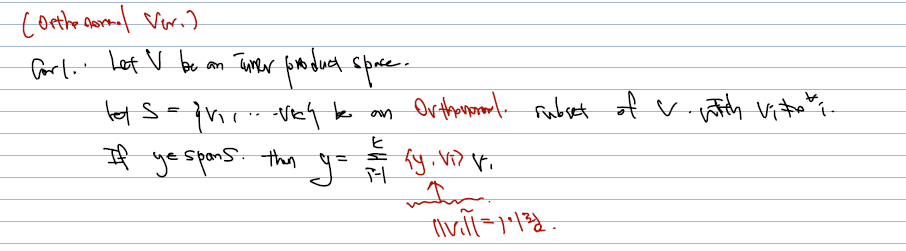 (Orthonormal Ver.)
Cor1. Let V be an inner product space.
let S = {v₁, ... vₖ} be an Orthonormal. subset of V. with vᵢ ≠ 0 ∀i.
If y ∈ span S. then y = Σᵢ₌₁ᵏ <y, vᵢ> vᵢ
↑
||vᵢ||² = 1이므로.